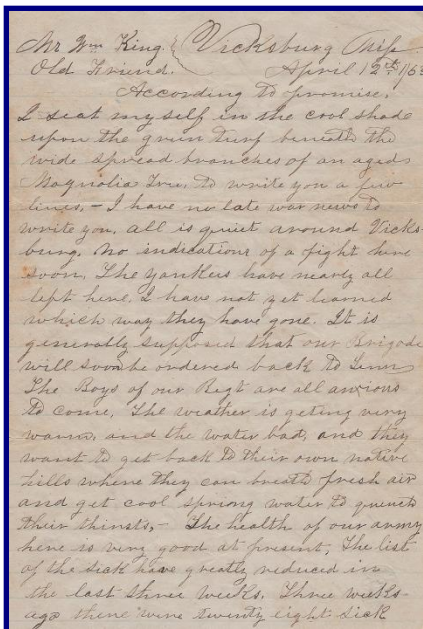 Mr Wm King. Vicksburg Miss
Old Friend. April 12th 1863
According to promise,
I seat myself in the cool shade
upon the green turf beneath the
wide spread branches of an aged
Magnolia Tree, to write you a few
lines, – I have no late war news to
write you, all is quiet around Vicks-
burg, no indications of a fight here
soon, The yankees have nearly all
left here, I have not yet learned
which way they have gone. It is
generally supposed that our Brigade
will soon be ordered back to Tenn
The Boys of our Regt are all anxious
to come, The weather is geting very
warm, and the water bad, and they
want to get back to their own native
hills where they can breath fresh air
and get cool spring water to quench
their thirsts, – The health of our army
here is very good at present, The list
of the sick have greatly reduced in
the last three weeks, Three weeks
ago there were twenty eight sick